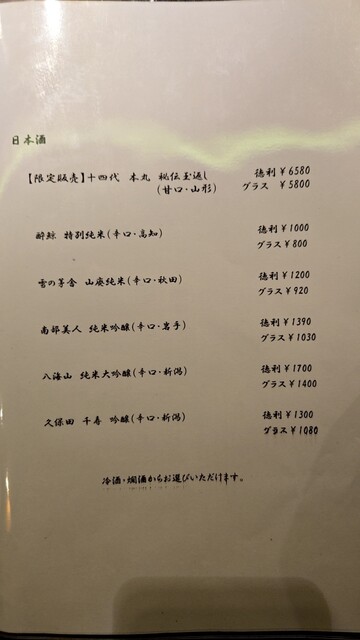 日本酒
【限定販売】十四代 本丸 秘伝玉返し 徳利 ¥6580
(甘口・山形) グラス ¥5800
酔鯨 特別純米(辛口・高知) 徳利 ¥1000
グラス ¥800
雪の茅舎 山廃純米(辛口・秋田) 徳利 ¥1200
グラス ¥920
南部美人 純米吟醸(辛口・岩手) 徳利 ¥1390
グラス ¥1030
八海山 純米大吟醸(辛口・新潟) 徳利 ¥1700
グラス ¥1400
久保田 千寿 吟醸(辛口・新潟) 徳利 ¥1300
グラス ¥1080
冷酒・燗酒からお選びいただけます。